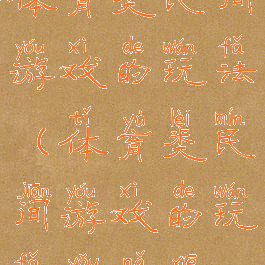 体育类民间
yóu xì de wán fǎ
游戏的玩法
tǐ yù lèi mín
（体育类民
jiān yóu xì de wán
间游戏的玩